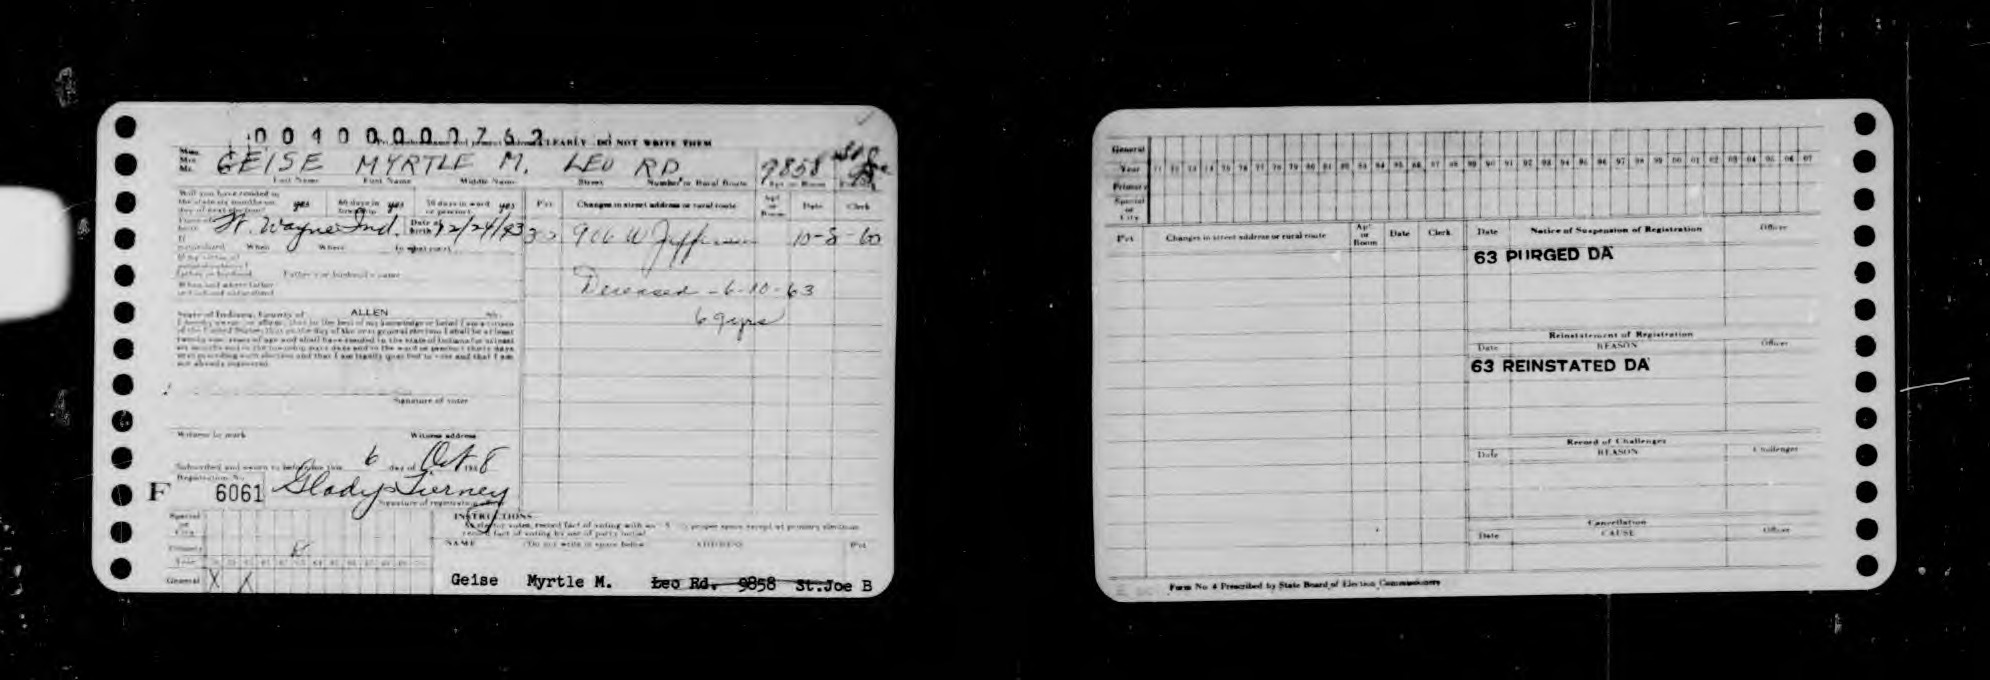 0040000762
CLEARLY DO NOT WRITE THEM
Miss
Mrs.
Mr.
GEISE MYRTLE M. LEO RD. 9858
Last Name First Name Middle Name Street Number or Rural Route Apt or Room
Will you have resided in
the state six months on yes 60 days in township yes 30 days in ward or precinct yes
day of next election?
Ft. Wayne Ind. Date of birth 12/24/93
If naturalized When Where In what court
Father's or husband's name
When and where father
or husband naturalized
State of Indiana, County of ALLEN ss:
I hereby swear or affirm, that to the best of my knowledge or belief I am a citizen
of the United States; that on the day of the next general election I shall be at least
twenty-one years of age and shall have resided in the state of Indiana for at least
six months and in the township sixty days and in the ward or precinct thirty days
next preceding such election and that I am legally qualified to vote and that I am
not already registered.
Signature of voter
Witness to mark Witness address
Subscribed and sworn to before me this 6 day of Oct 1958
Registration No.
F 6061 Gladys Tierney
Signature of registration
Pct Changes in street address or rural route Apt or Room Date Clerk
906 W Jefferson 10-8-60
Deceased - 6-10-63
69yrs
Special
or
City
Primary R
Year
General X X
INSTRUCTIONS
NAME (Do not write in space below) ADDRESS Pct
Geise Myrtle M. Leo Rd. 9858 St.Joe B
General
Year 71 72 73 74 75 76 77 78 79 80 81 82 83 84 85 86 87 88 89 90 91 92 93 94 95 96 97 98 99 00 01 02 03 04 05 06 07
Primary
Special
or
City
Pct Changes in street address or rural route Apt or Room Date Clerk
Date Notice of Suspension of Registration Officer
63 PURGED DA
Reinstatement of Registration
Date REASON Officer
63 REINSTATED DA
Record of Challenges
Date REASON Challenger
Cancellation
Date CAUSE Officer
Form No 4 Prescribed by State Board of Election Commissioners